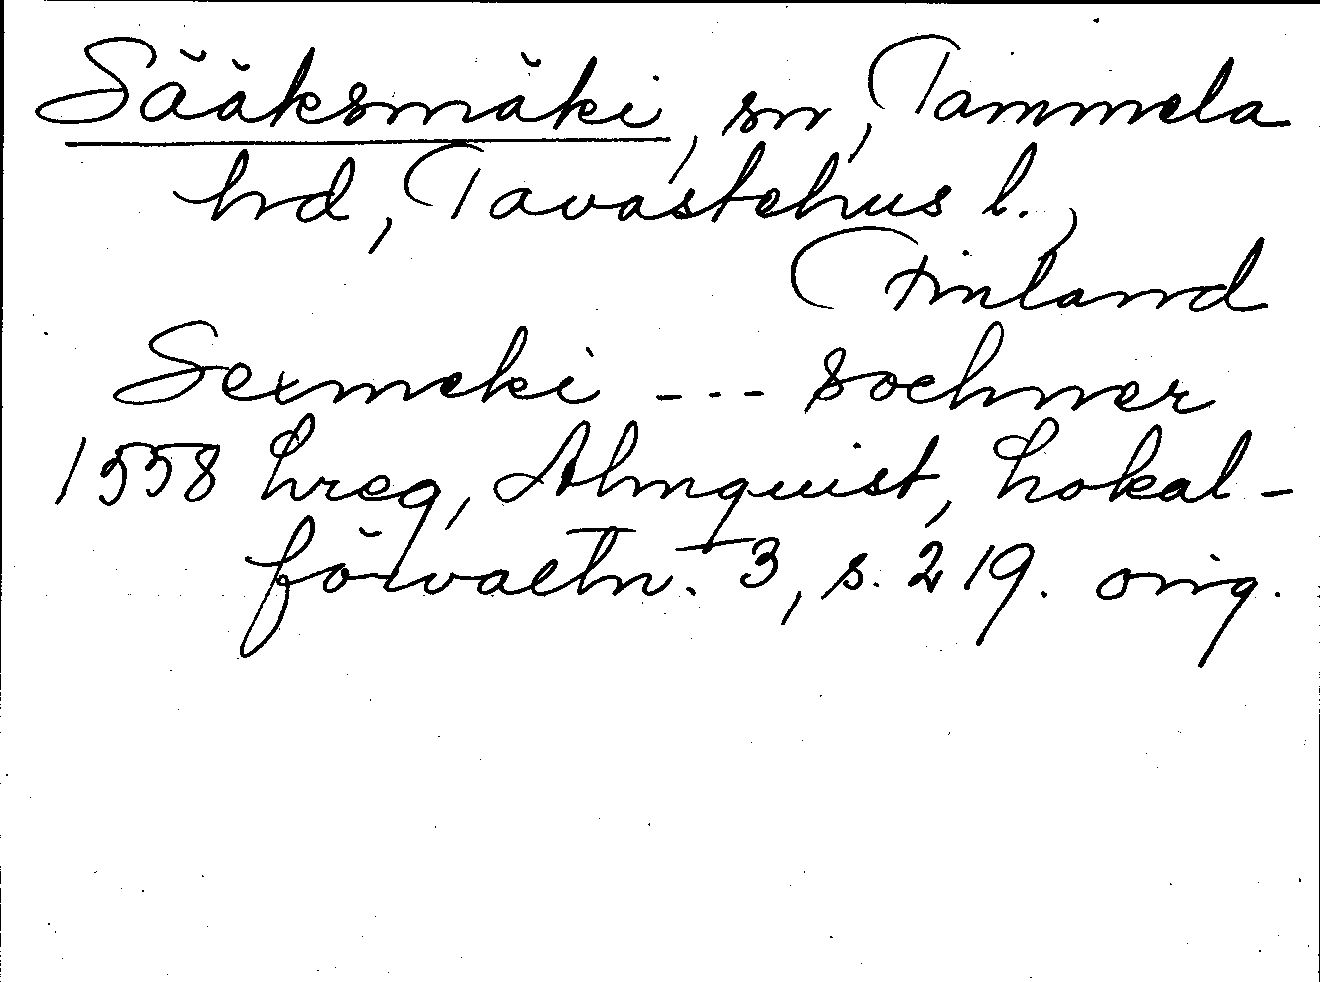 Sääksmäki, sn, Tammela
hd, Tavastehus l.,
Finland
Sexmeki --- sochner
1558 hreg, Almquist, Lokal-
förvaltn. 3, s. 219. orig.